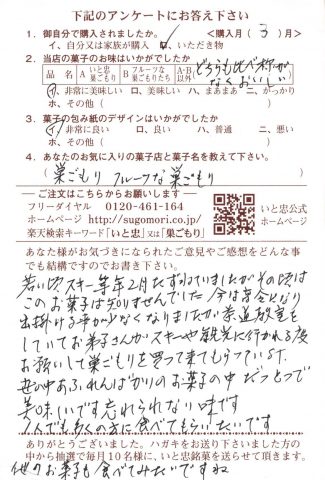 下記のアンケートにお答え下さい
1. 御自分で購入されましたか。 <購入月( 3 )月>
イ、自分又は家族が購入 ロ、いただき物
2. 当店の菓子のお味はいかがでしたか どちらも比べ物が
品 名 A いと忠巣ごもり B フルーツな巣ごもりたち A・B以外 なくおいしい
イ、非常に美味しい ロ、美味しい ハ、まあまあ ニ、がっかり
ホ、その他( )
3. 菓子の包み紙のデザインはいかがでしたか
イ、非常に良い ロ、良い ハ、普通 ニ、悪い
ホ、その他( )
4. あなたのお気に入りの菓子店と菓子名を教えて下さい。
巣ごもり フルーツな巣ごもり
ご注文はこちらからお願いします
フリーダイヤル 0120-461-164
ホームページ http://sugomori.co.jp/
楽天検索キーワード「いと忠」又は「巣ごもり」
いと忠公式
ホームページ
あなた様がお気づきになられたご意見やご感想をどんな事
でも結構ですのでお書き下さい。
若い頃スキー等年2月たずねていましたがその頃は
このお菓子は知りませんでした 今は高令となり
出掛ける事が少なくなりましたが茶道教室を
していてお弟子さんがスキーや観光に行かれる後
お願いして巣ごもりを買って来てもらっています。
世の中あふれんばかりのお菓子の中 だっとつで
美味しいです忘れられない味です
1人でも多くの方に食べてもらいたいです
ありがとうございました。ハガキをお送り下さいました方の
中から抽選で毎月10名様に、いと忠銘菓を送らせて頂きます。
他のお菓子も食べてみたいですね